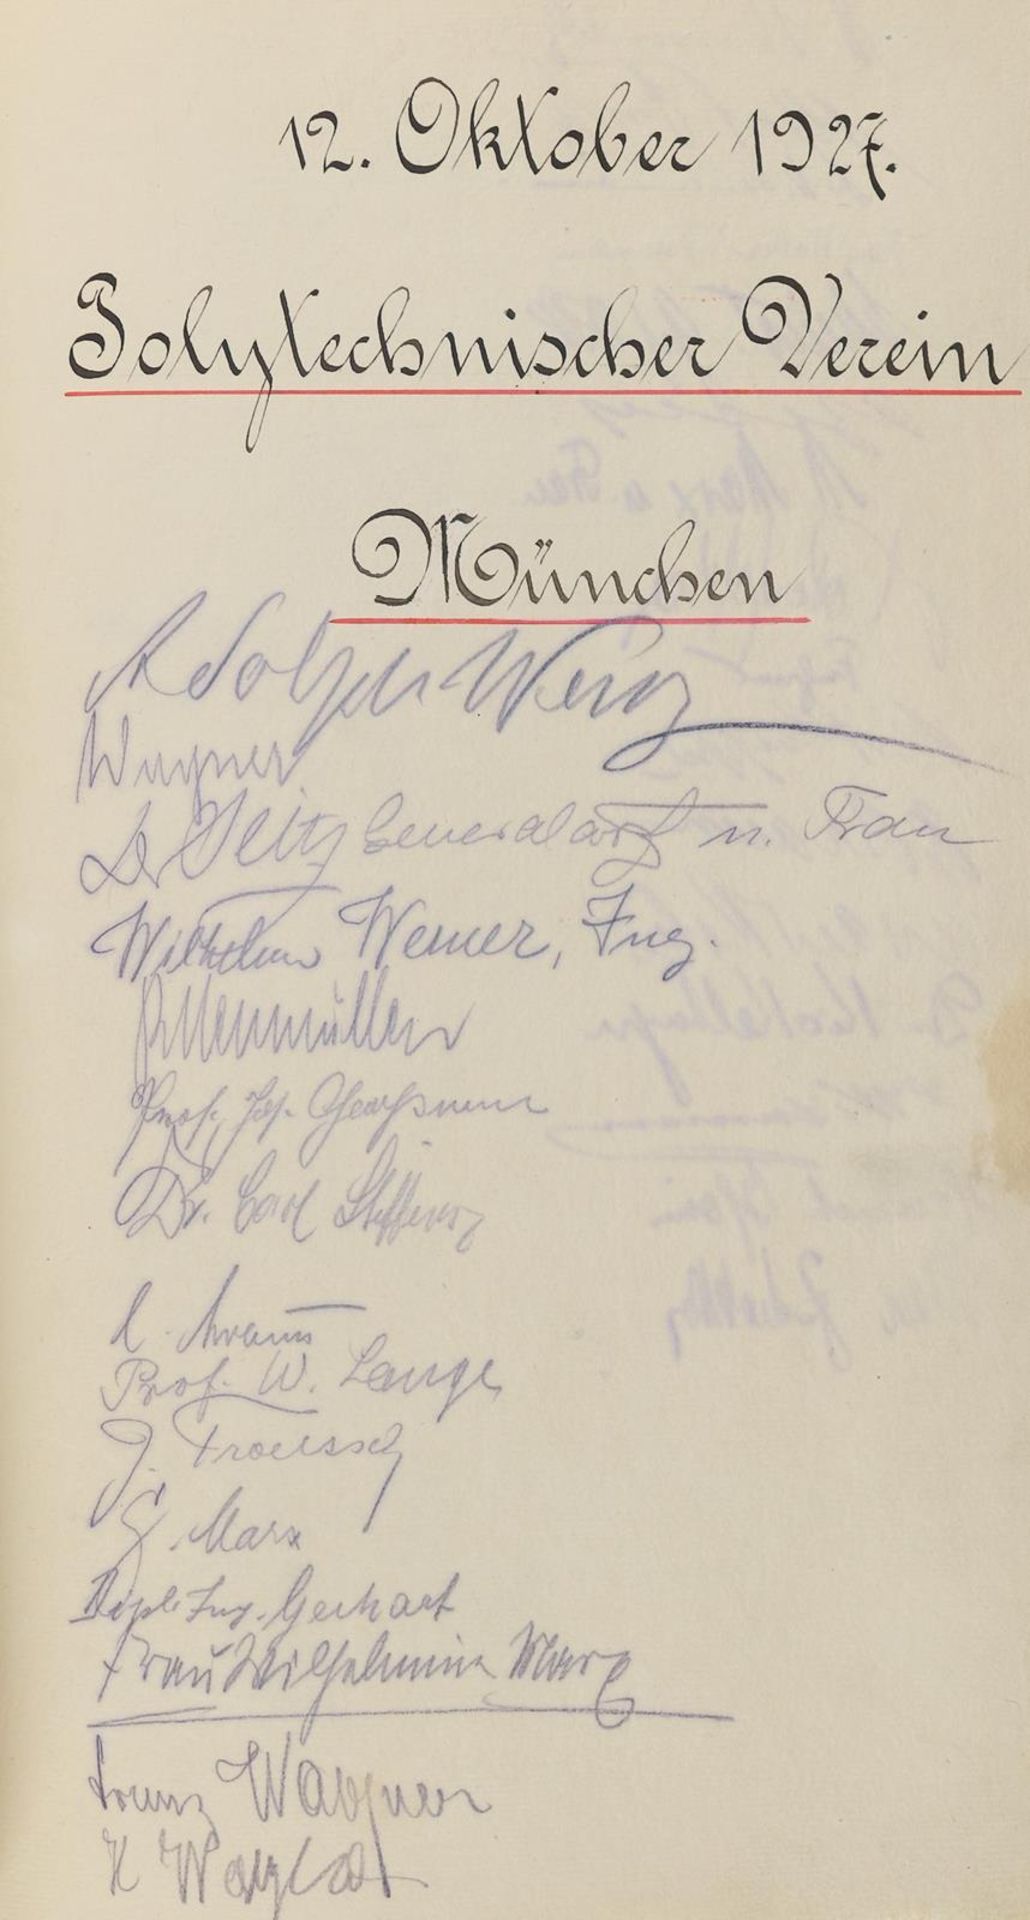 12. Oktober 1927.
Polytechnischer Verein
München
Adolph Wenz
Wagner
Dr Seitz Generalarzt u. Frau
Wilhelm Werner, Ing.
Prof. Jos.
Dr. Carl
Prof. W. Lange
J.
G. Marx
Dipl. Ing. Gerhart
Frau Wilhelmine Marx
Franz Wagner
K